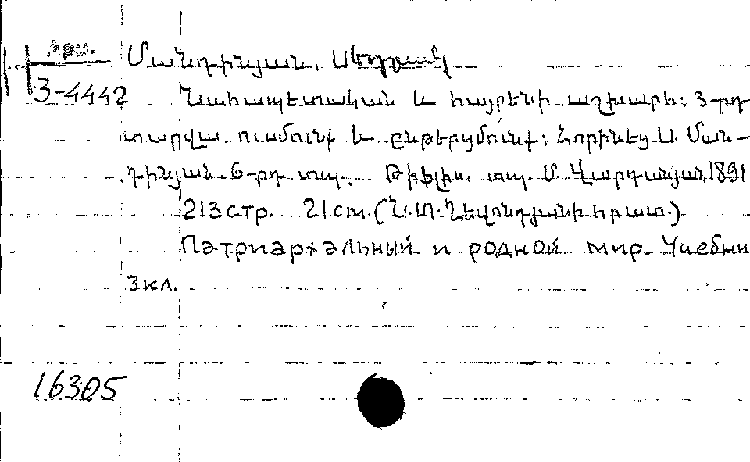 Հրտ.
Մանդինյան, Սեդրակ
3-4442
Նահապետական և հայրենի աշխարհ: 3-րդ
տարվա ուսումն և ընթերցմունք: Հորինեց Ս. Ման-
դինյան. 6-րդ տպ. Թիֆլիս. տպ. Մ. Վարդանյան, 1891
213 стр. 21 cm. (Ն. Տ. Ղևոնդյանի հրատ.)
Патриархальный и родной мир. Учебни
3 кл.
16305